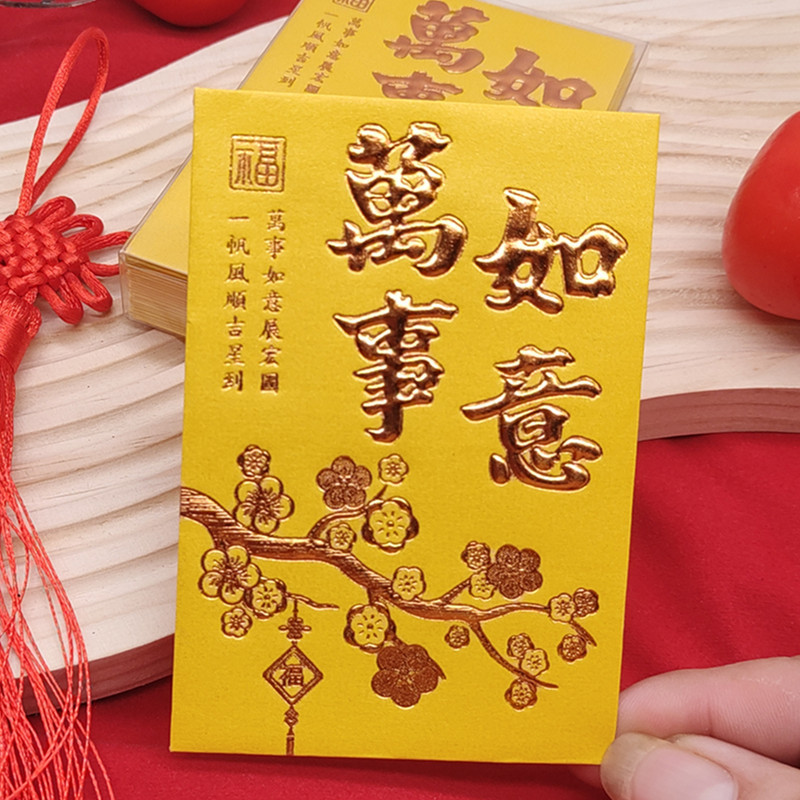 萬事
如意
福
萬事如意展宏圖
一帆風順吉星到
福
福
萬事如意展宏圖
一帆風順吉星到
萬事
如